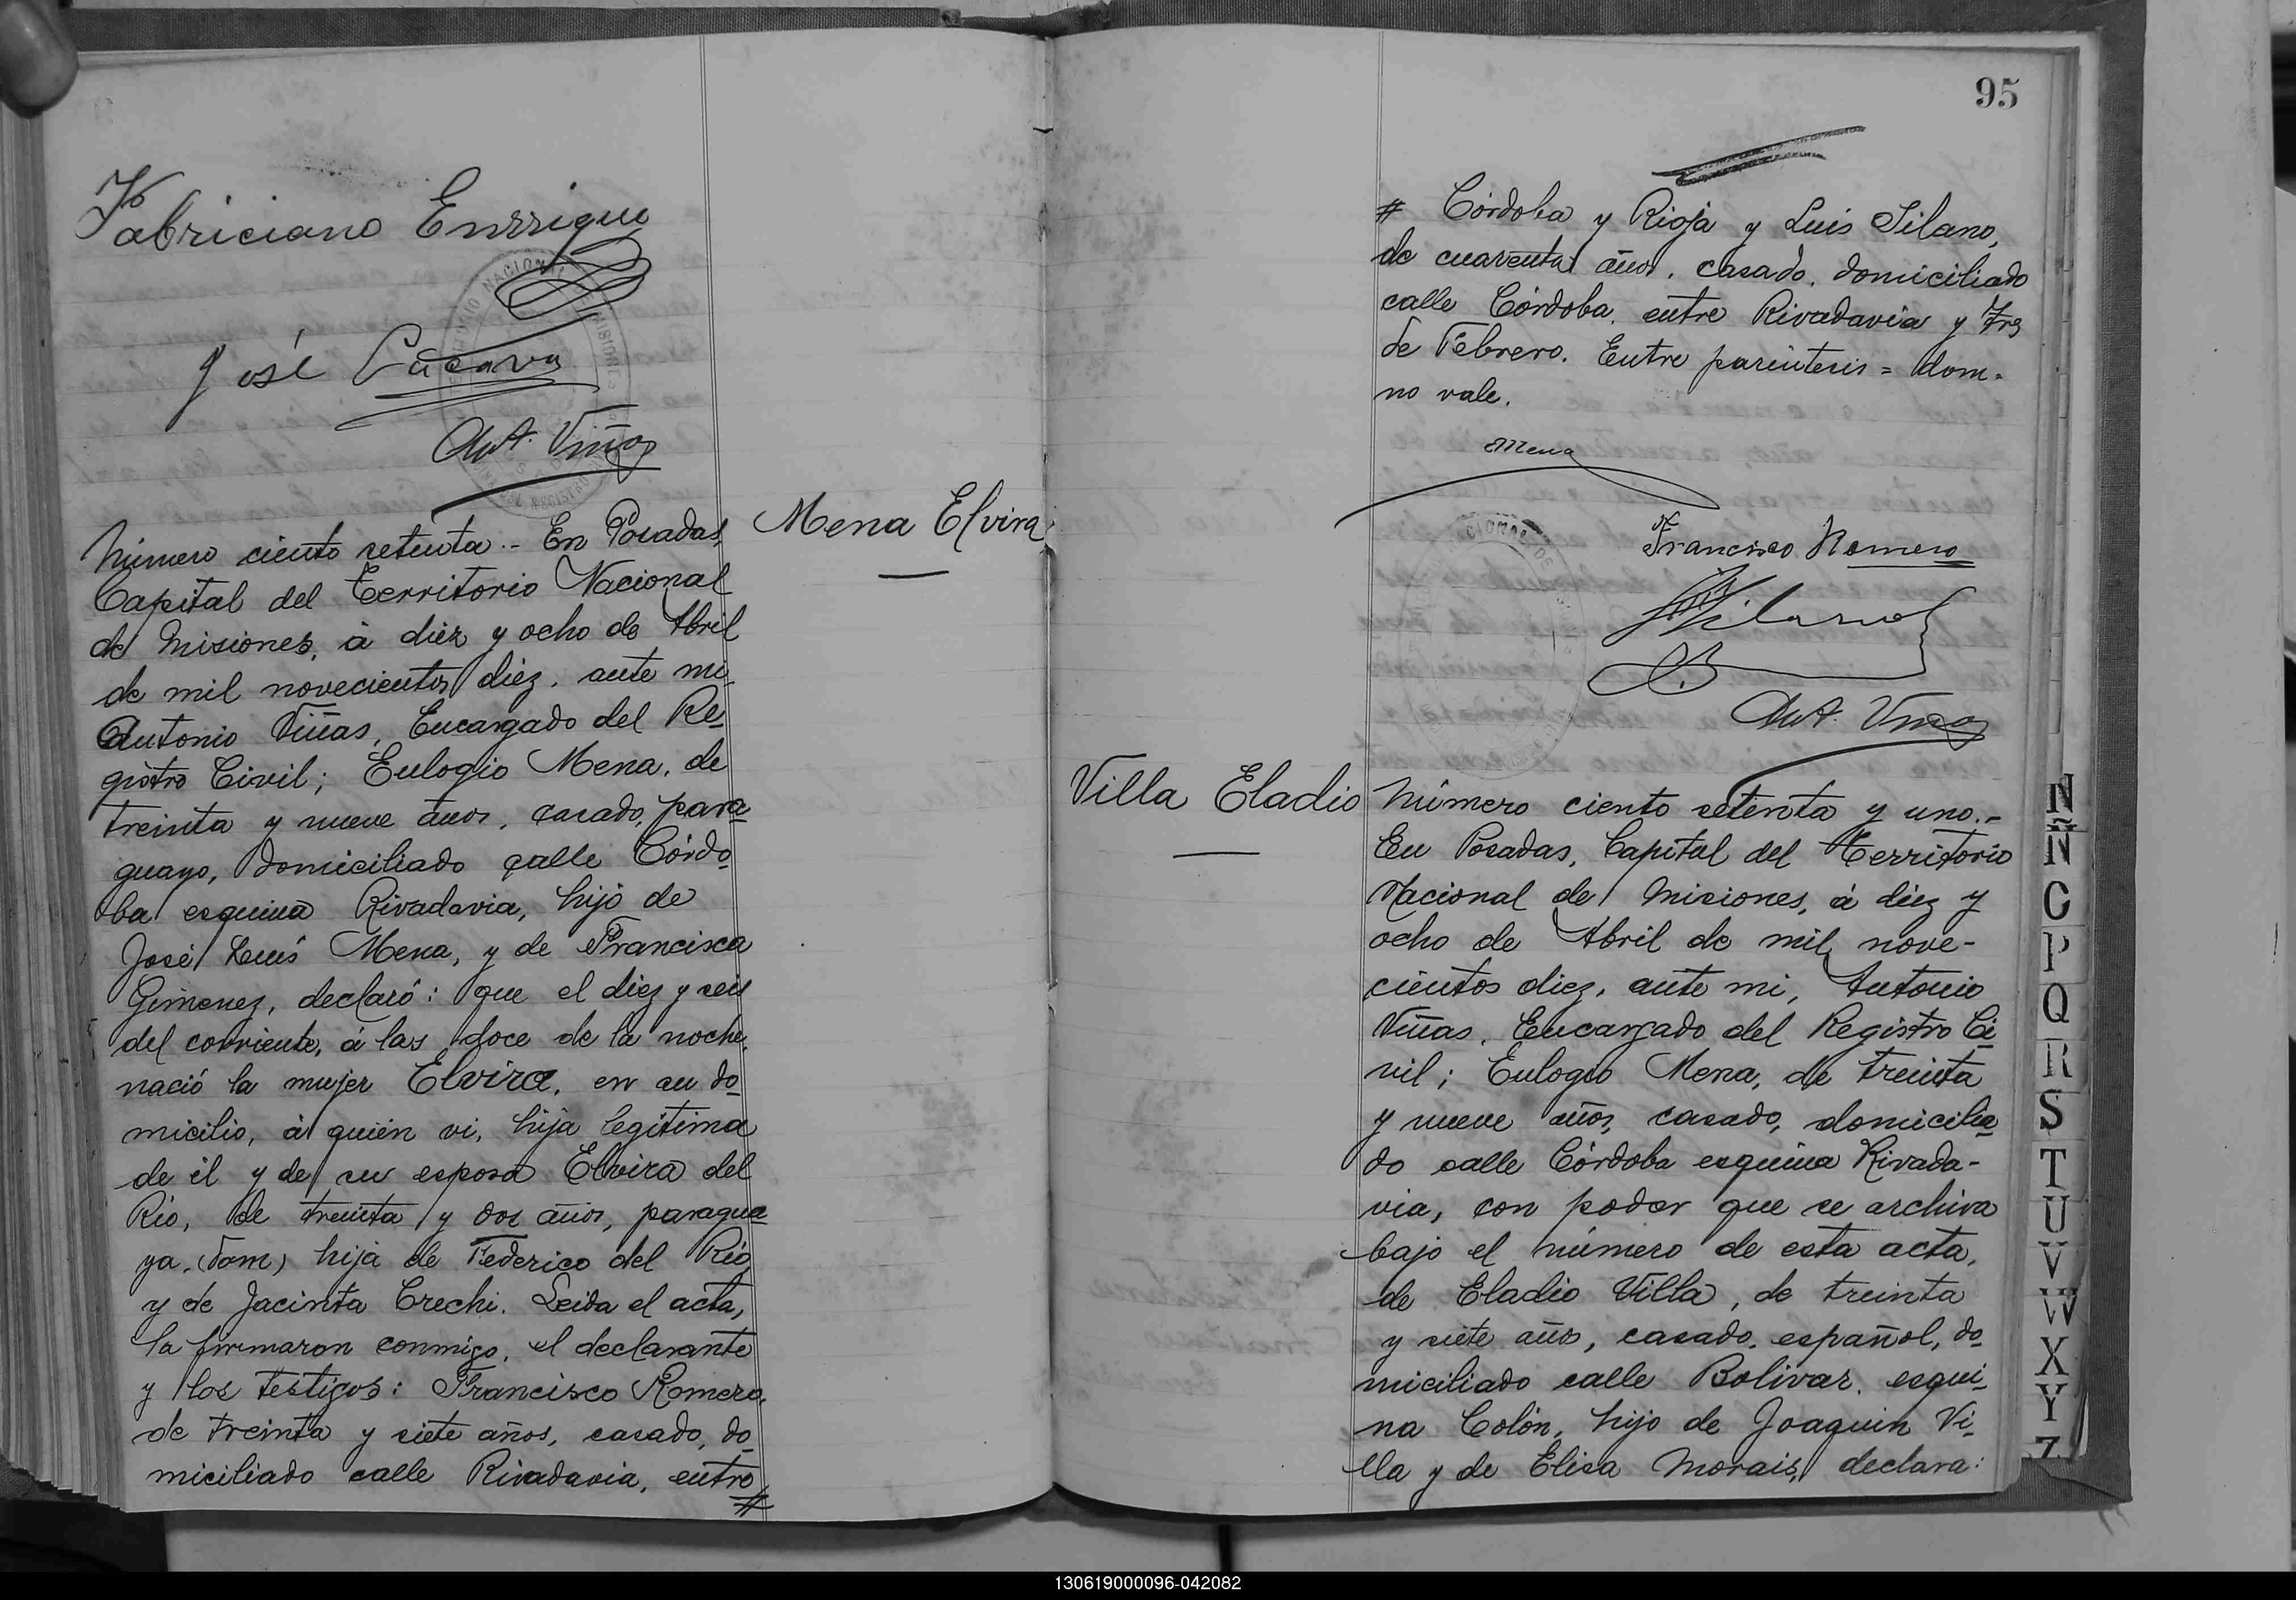 Fabriciano Enrrique
José
Ant. Viñas
Número ciento setenta.- En Posadas,
Capital del Territorio Nacional
de Misiones, á diez y ocho de Abril
de mil novecientos diez, ante mi,
Antonio Viñas, Encargado del Re-
gistro Civil; Eulogio Mena, de
treinta y nueve años, casado, para-
guayo, domiciliado calle Córdo-
ba esquina Rivadavia, hijo de
José Luís Mena, y de Francisca
Gimenez, declaró: que el diez y seis
del corriente, á las doce de la noche,
nació la mujer Elvira, en su do-
micilio, á quién vi, hija legítima
de él y de su esposa Elvira del
Río, de treinta y dos años, paragua-
ya, (dom) hija de Federico del Río,
y de Jacinta Crechi. Leida el acta,
la firmaron conmigo, el declarante
y los testigos: Francisco Romero,
de treinta y siete años, casado, do-
miciliado calle Rivadavia, entre
#
Mena Elvira
95
# Córdoba y Rioja y Luis Silano,
de cuarenta años, casado, domiciliado
calle Córdoba, entre Rivadavia y Tres
de Febrero. Entre paréntesis = dom =
no vale.
Mena
Francisco Romero
Ant. Viñas
Villa Eladio
Número ciento setenta y uno.-
En Posadas, Capital del Territorio
Nacional de Misiones, á diez y
ocho de Abril de mil nove-
cientos diez, ante mi, Antonio
Viñas, Encargado del Registro Ci-
vil; Eulogio Mena, de treinta
y nueve años, casado, domicilia-
do calle Córdoba esquina Rivada-
via, con poder que se archiva
bajo el número de esta acta,
de Eladio Villa, de treinta
y siete años, casado, español, do-
miciliado calle Bolivar, esqui-
na Colón, hijo de Joaquin Vi-
lla y de Elisa Morais, declara:
N
Ñ
O
P
Q
R
S
T
U
V
W
X
Y
Z
130619000096-042082